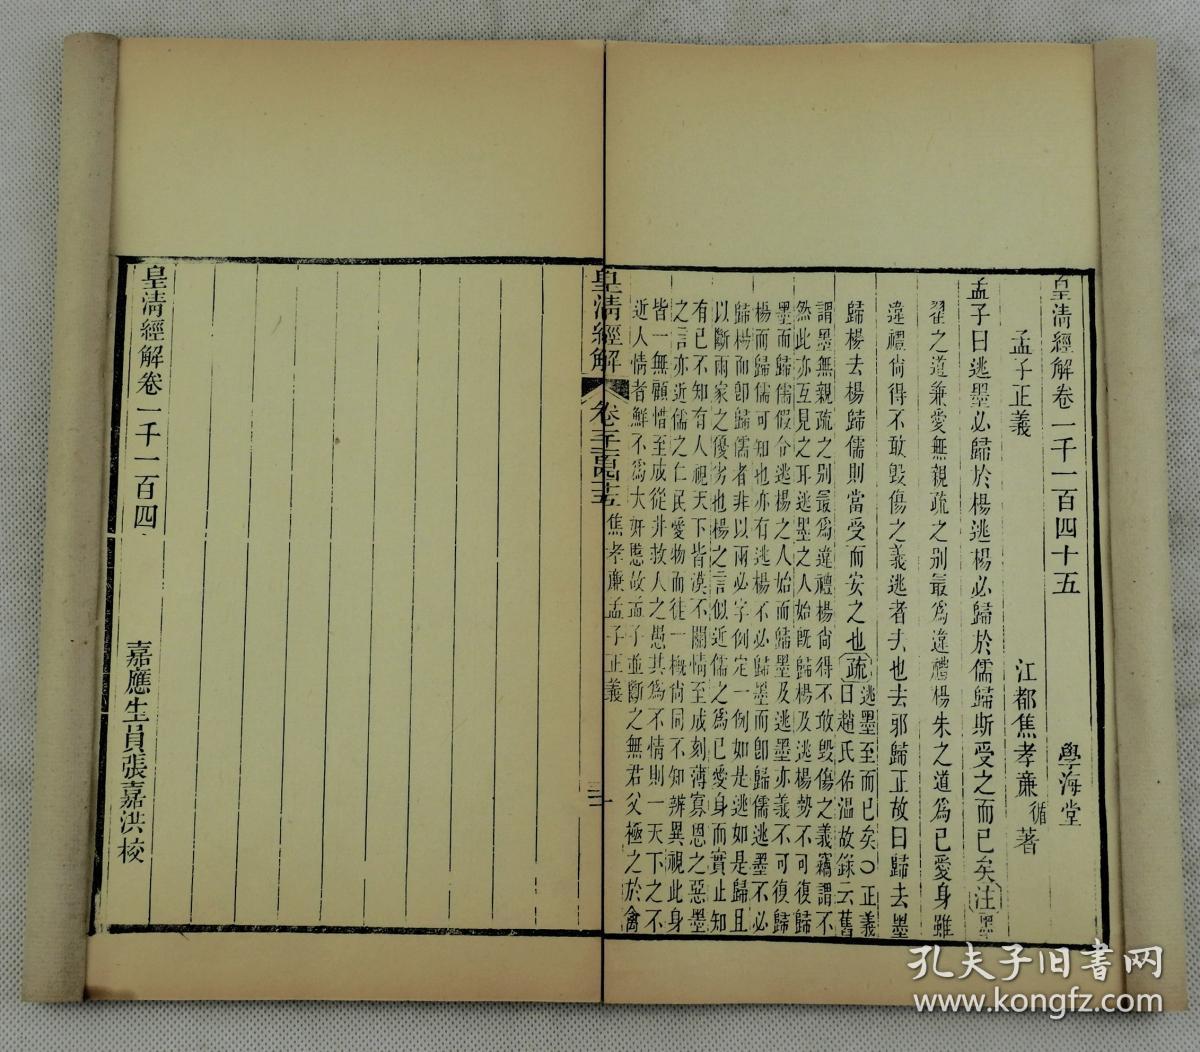 皇清經解卷一千一百四十五
學海堂
孟子正義
江都焦孝廉循著
孟子曰逃墨必歸於楊逃楊必歸於儒歸斯受之而已矣注墨
翟之道兼愛無親疏之别最爲違禮楊朱之道爲已愛身雖
違禮尙得不敢毀傷之義逃者去也去邪歸正故曰歸去墨
歸楊去楊歸儒則當受而安之也疏逃墨至而已矣○正義
曰趙氏佑溫故錄云舊
謂墨無親疏之别最爲違禮楊尙得不敢毀傷之義竊謂不
然此亦互見之耳逃墨之人始旣歸楊及逃楊勢不可復歸
墨而歸儒假令逃楊之人始而歸墨及逃墨亦義不可復歸
楊而歸儒可知也亦有逃楊不必歸墨而卽歸儒逃墨不必
歸楊而卽歸儒者非以兩必字例定一例如是逃如是歸且
以斷兩家之優劣也楊之言似近儒之爲已愛身而實止知
有已不知有人視天下皆漠不關情至成刻薄寡恩之惡墨
之言亦近儒之仁民愛物而徒一槪尙同不知辨異視此身
皆一無顧惜至成從井救人之愚其爲不情則一天下之不
近人情者鮮不爲大奸慝故孟子並斷之無君父極之於禽
皇清經解
焦孝廉孟子正義
皇清經解卷一千一百四
嘉應生員張嘉洪校
孔夫子旧书网
www.kongfz.com